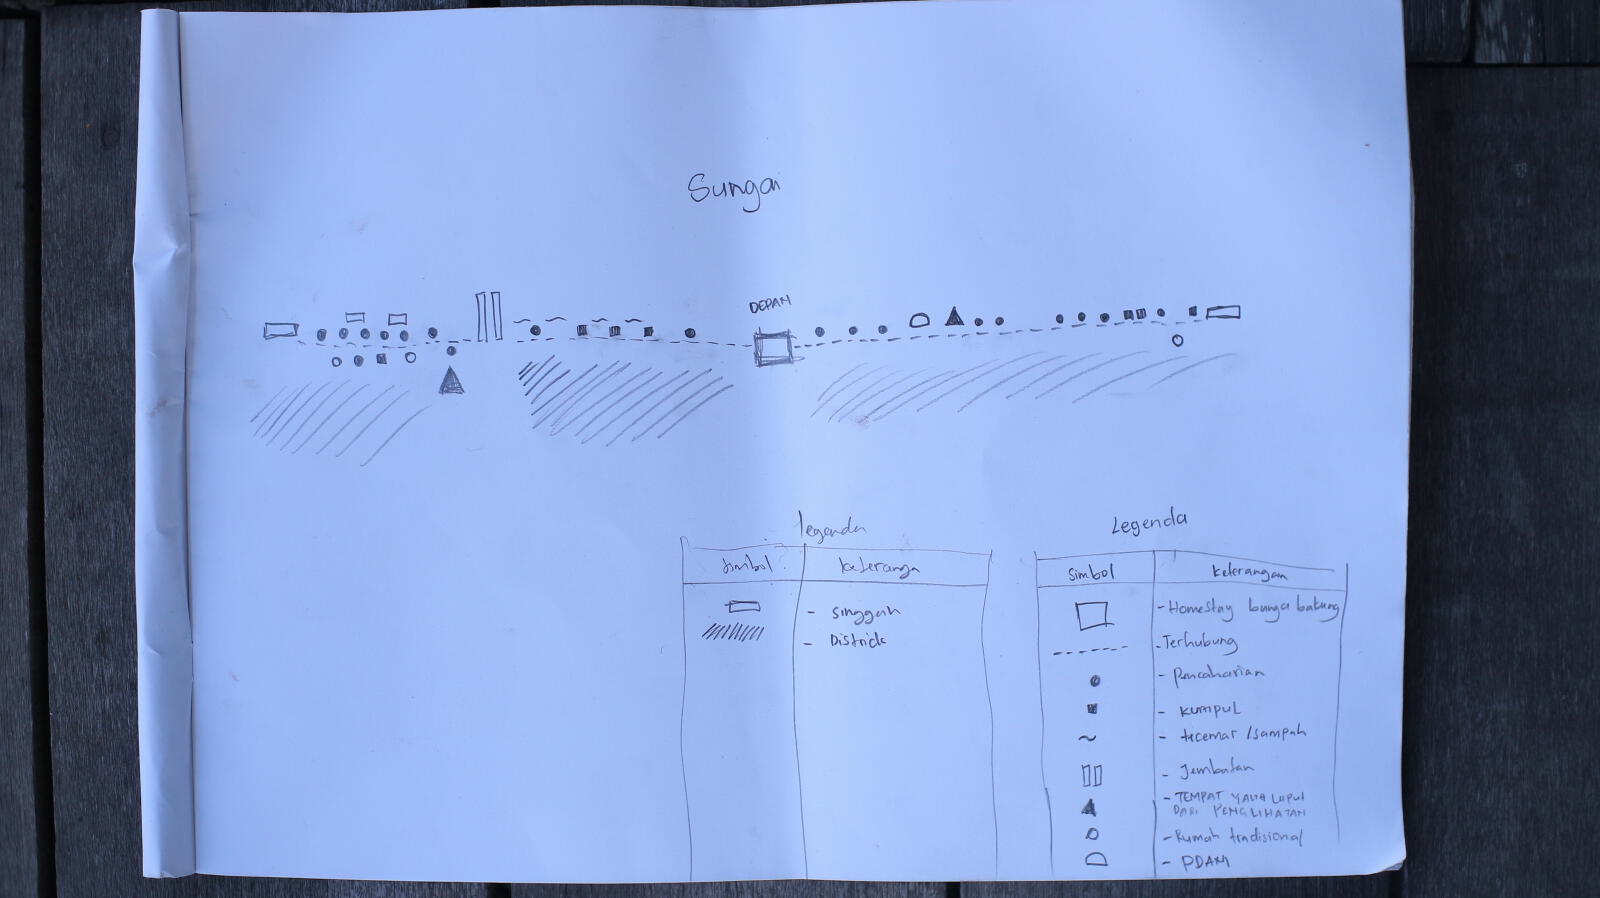 Sungai
DEPAN
legenda
simbol
keterangn
- singgah
- District
Legenda
simbol
keterangan
- Homestay bunga bakung
- Terhubung
- Pencaharian
- kumpul
- tecemar / sampah
- Jembatan
- TEMPAT YANG LUPUT
DARI PENGLIHATAN
- Rumah tradisional
- PDAM